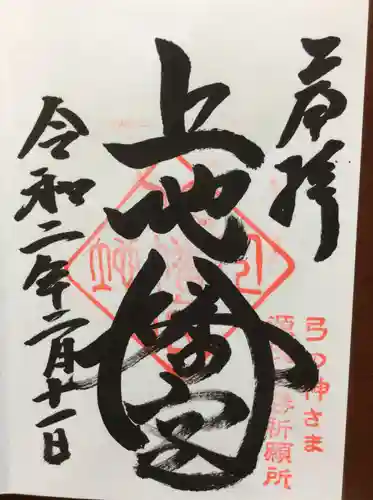 奉拝
弓の神さま
源
祈願所
上地八幡宮
令和二年二月十一日